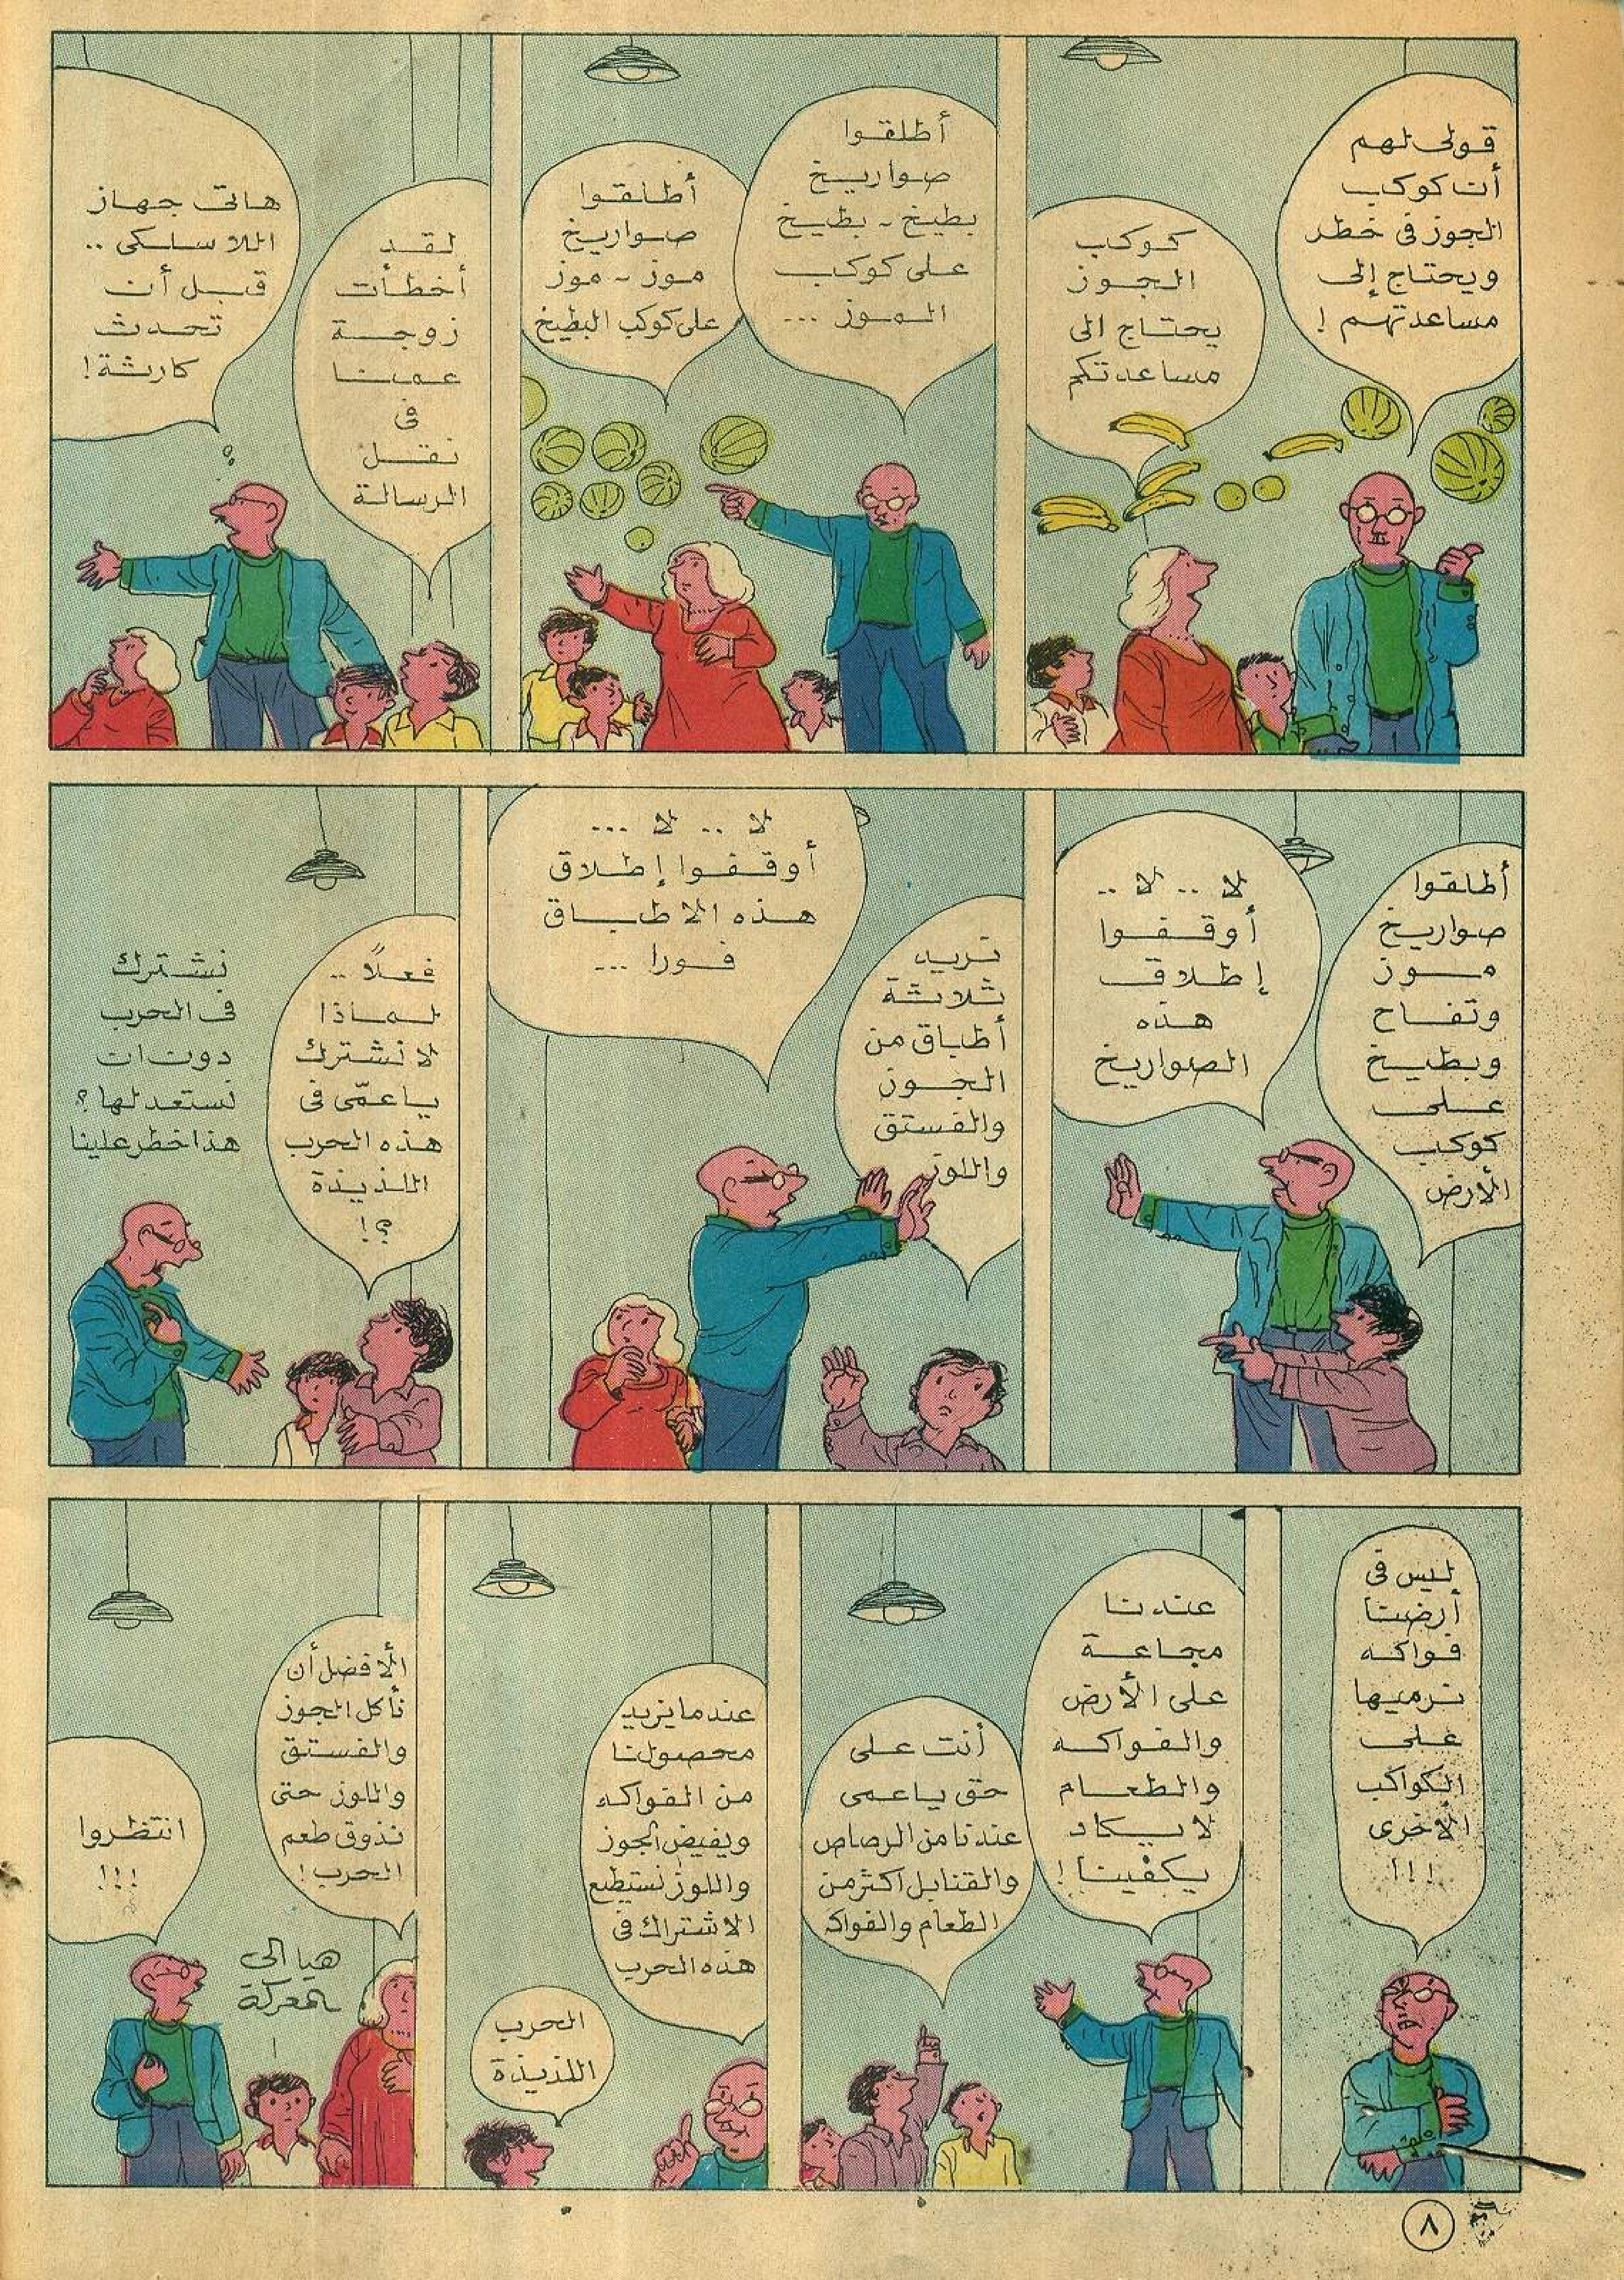 قولى لهم
أن كوكب
الجوز فى خطر
ويحتاج إلى
مساعدتهم !
كوكب
الجوز
يحتاج الى
مساعدتكم
أطلقوا
صواريخ
بطيخ - بطيخ
على كوكب
الموز ...
أطلقوا
صواريخ
موز - موز
على كوكب البطيخ
لقد
أخطأت
زوجة
عمنا
فى
نقل
الرسالة
هاتى جهاز
اللاسلكى ..
قبل أن
تحدث
كارثة !
أطلقوا
صواريخ
موز
وتفاح
وبطيخ
على
كوكب
الأرض
لا .. لا ..
أوقفوا
إطلاق
هذه
الصواريخ
نريد
ثلاثة
أطباق من
الجوز
والفستق
واللوز
لا .. لا ...
أوقفوا إطلاق
هذه الاطباق
فورا ...
فعلاً ..
لماذا
لا نشترك
يا عمّى فى
هذه الحرب
اللذيذة
؟!
نشترك
فى الحرب
دون ان
نستعد لها ؟
هذا خطر علينا
ليس فى
أرضنا
فواكه
نرميها
على
الكواكب
الأخرى
!!!
عندنا
مجاعة
على الأرض
والفواكه
والطعام
لا يكاد
يكفينا !
أنت على
حق يا عمى
عندنا من الرصاص
والقنابل اكثر من
الطعام والفواكه
عندما يزيد
محصولنا
من الفواكه
ويفيض الجوز
واللوز نستطيع
الاشتراك فى
هذه الحرب
الحرب
اللذيذة
الأفضل أن
نأكل الجوز
والفستق
واللوز حتى
نذوق طعم
الحرب !
هيا الى
المعركة
انتظروا
!!!
٨